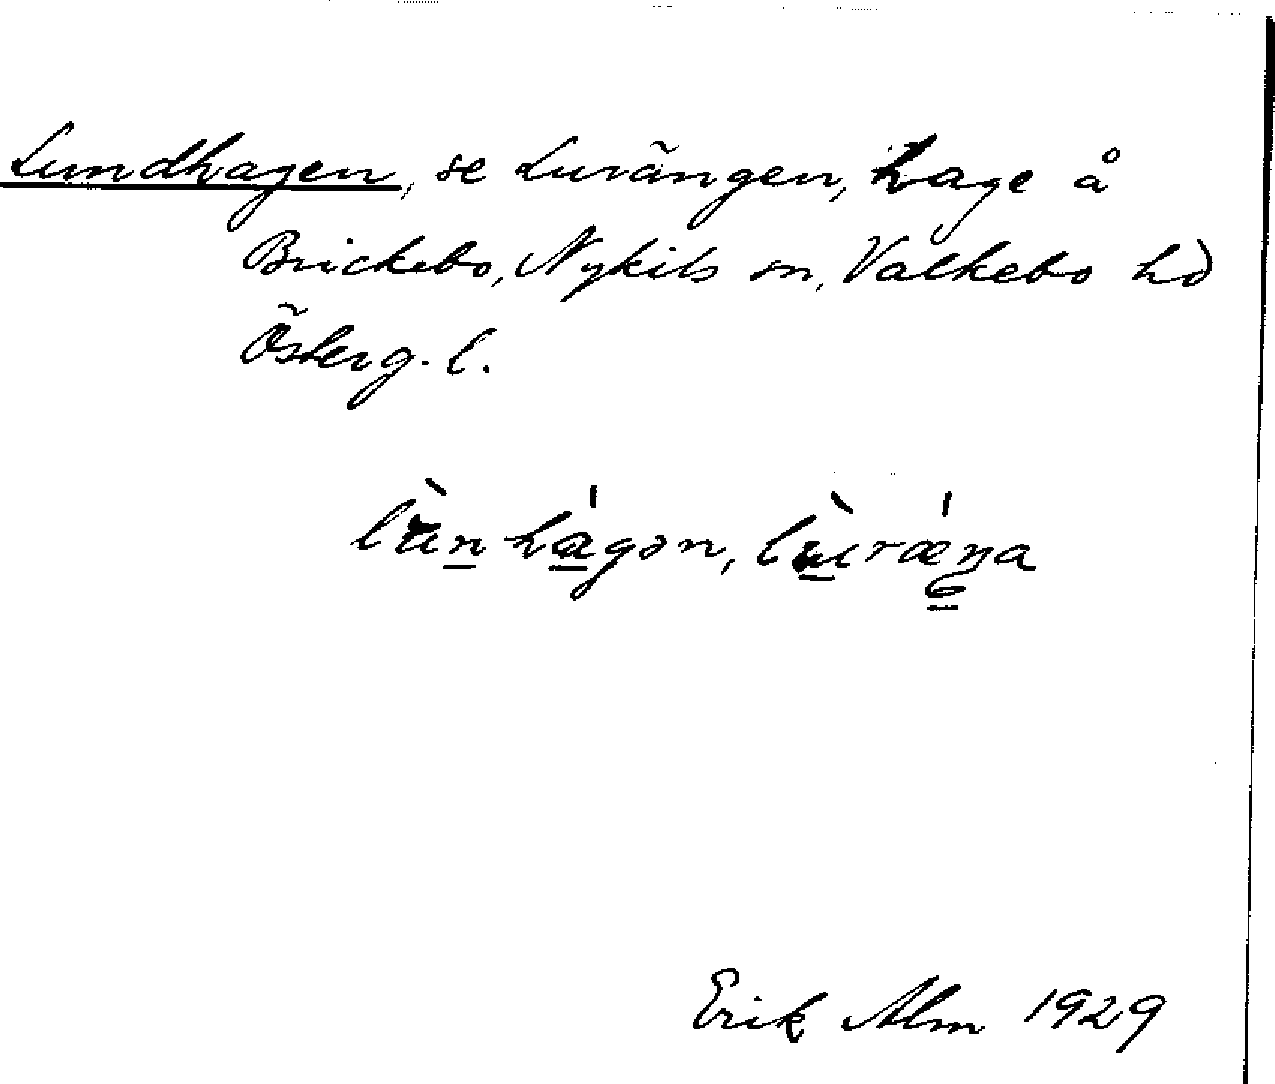 Lundhagen, se Lurängen, hage å
Brickebo, Nykils sn, Valkebo hd
Österg. l.
lùn hágən, lùrǽŋa
Erik Alm 1929